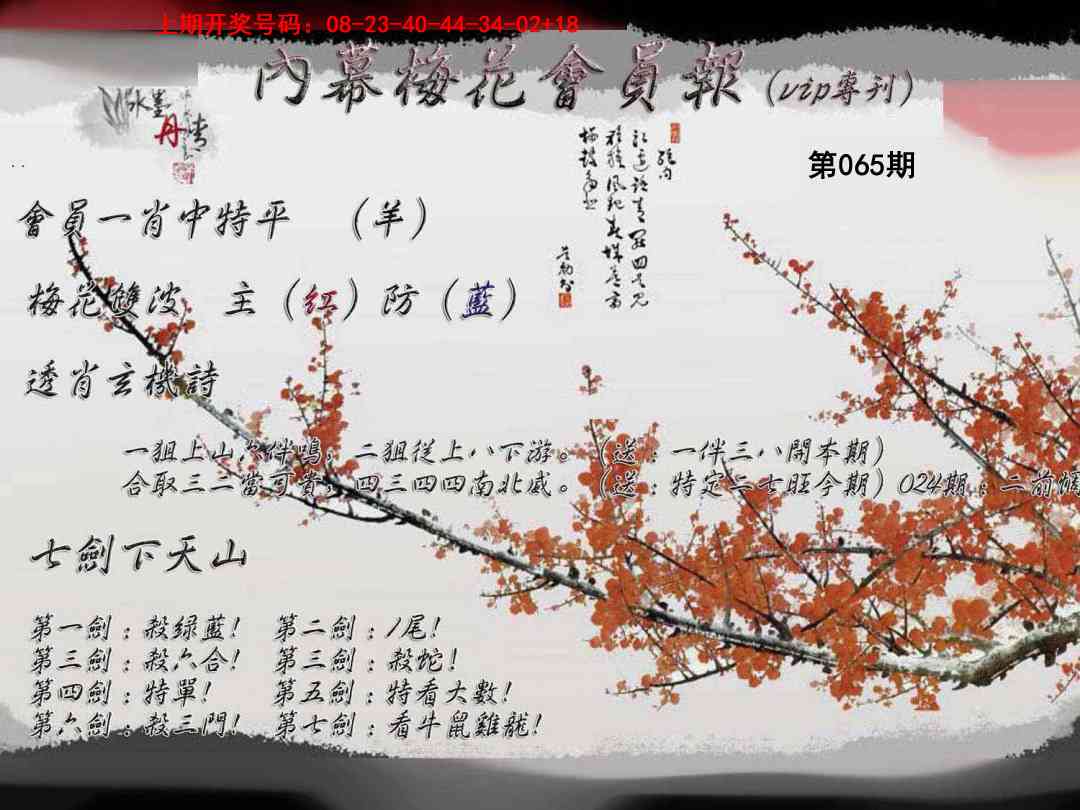 上期开奖号码：08-23-40-44-34-02+18
內幕梅花會員報（vip專刊）
水墨
丹青
第065期
會員一肖中特平　（羊）
梅花雙波　主（紅）防（藍）
透肖玄機詩
一狙上山六伴鳴，二狙從上八下游。（送：一伴三八開本期）
合取三二當可貴，四三四四南北威。（送：特定二七旺今期）024期：二前
七劍下天山
第一劍：殺绿藍！　第二劍：1尾！
第三劍：殺六合！　第三劍：殺蛇！
第四劍：特單！　第五劍：特看大數！
第六劍：殺三門！　第七劍：看牛鼠雞龍！